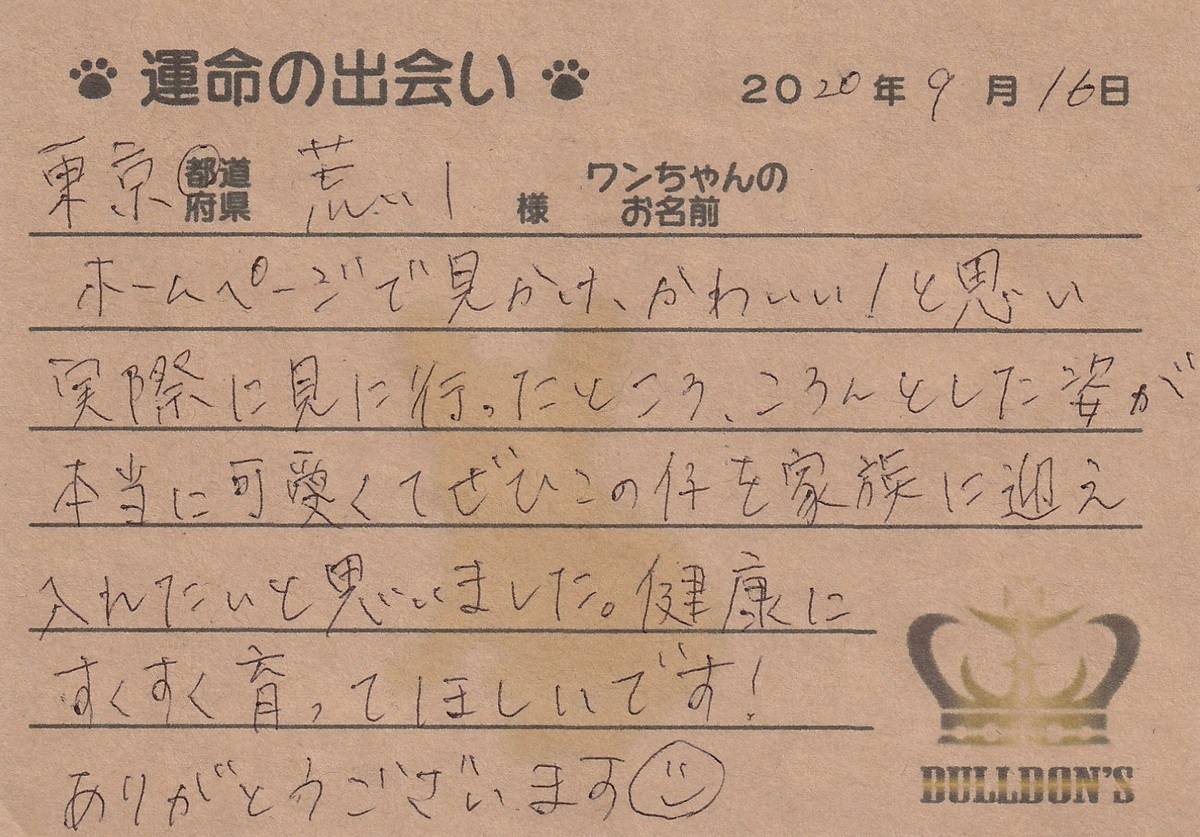 運命の出会い 2020年9月16日
東京 都道府県 荒い 様 ワンちゃんのお名前
ホームページで見かけ、かわいい!と思い
実際に見に行ったところ、ころんとした姿が
本当に可愛くてぜひこの仔を家族に迎え
入れたいと思いました。健康に
すくすく育ってほしいです!
ありがとうございます
BULLDON'S